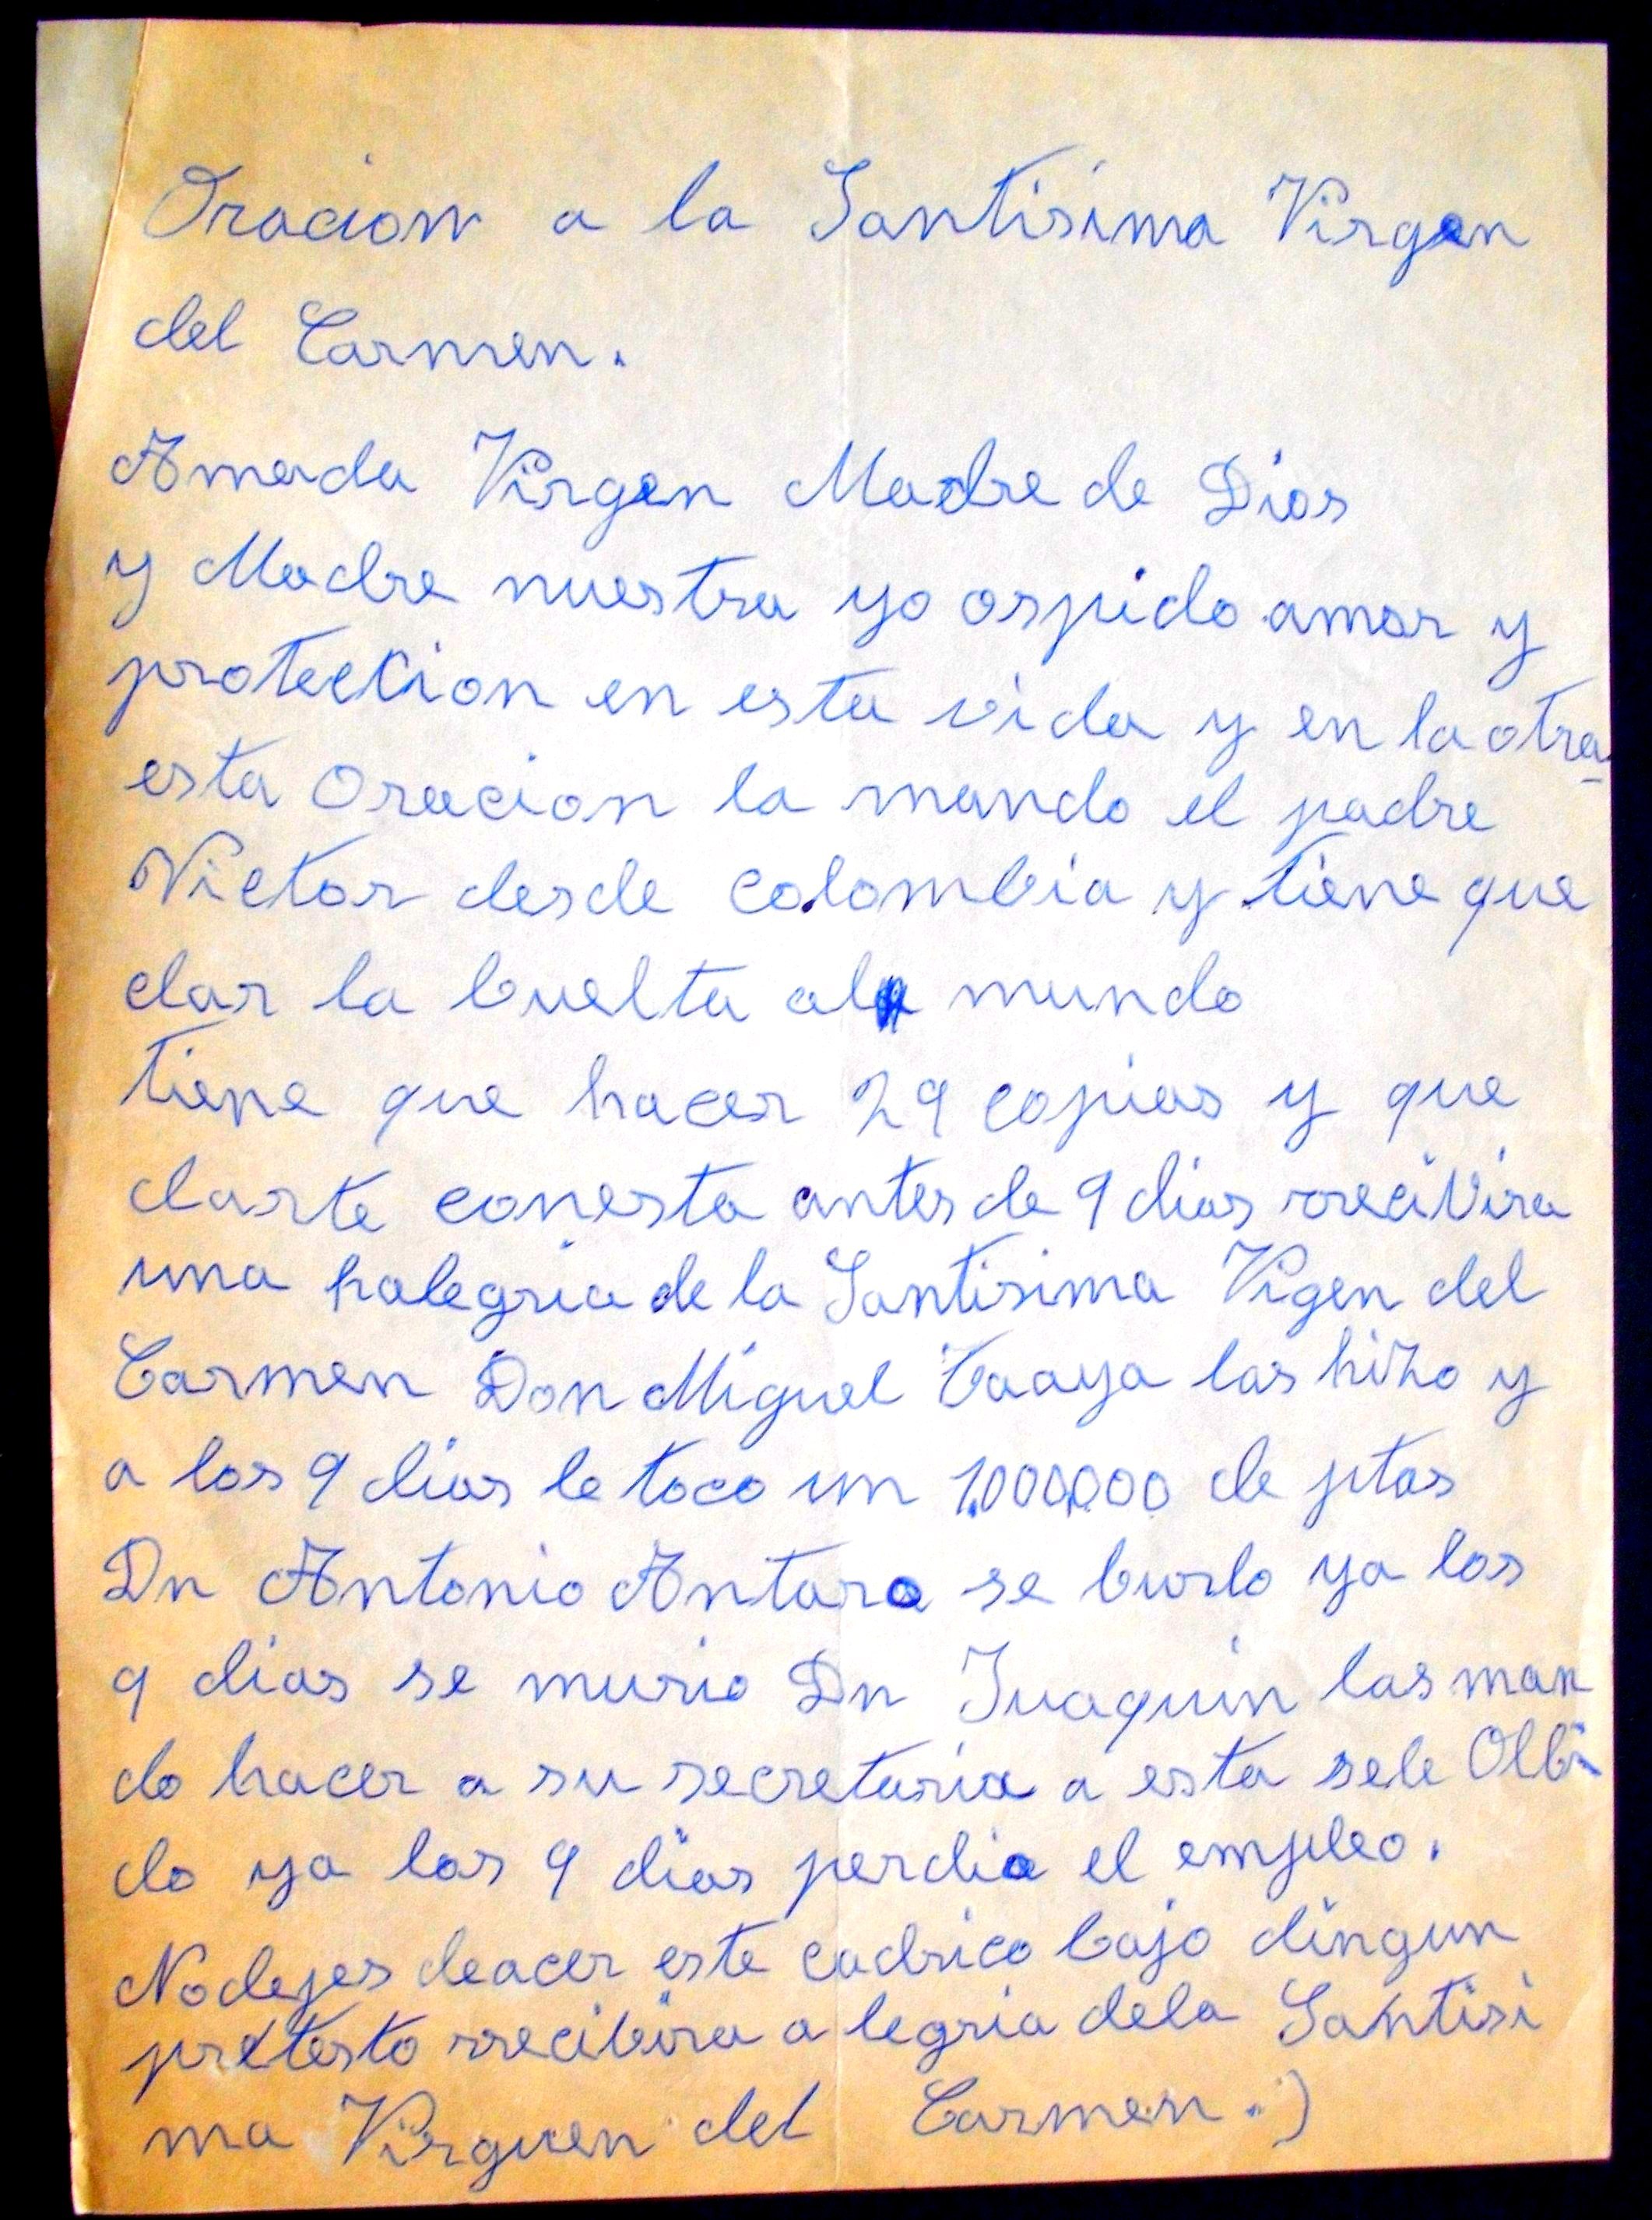 Oracion a la Santisima Virgen
del Carmen.
Amada Virgen Madre de Dios
y Madre nuestra yo ospido amor y
protection en esta vida y en la otra
esta oracion la mando el padre
Victor desde colombia y tiene que
dar la buelta al mundo
tiene que hacer 29 copias y que
darte conesta antes de 9 dias rrecivira
una halegria de la Santisima Vigen del
Carmen Don Miguel las hizo y
a los 9 dias le toco un 1.000,000 de ptas
Dn Antonio Antaro se burlo ya los
9 dias se murio Dn Juaquin las man
do hacer a su secretaria a esta sele Olbi
do ya los 9 dias perdio el empleo.
No dejes deacer este cadrico bajo dingun
pretesto rrecibira a legria dela Santisi
ma Virguen del Carmen.)